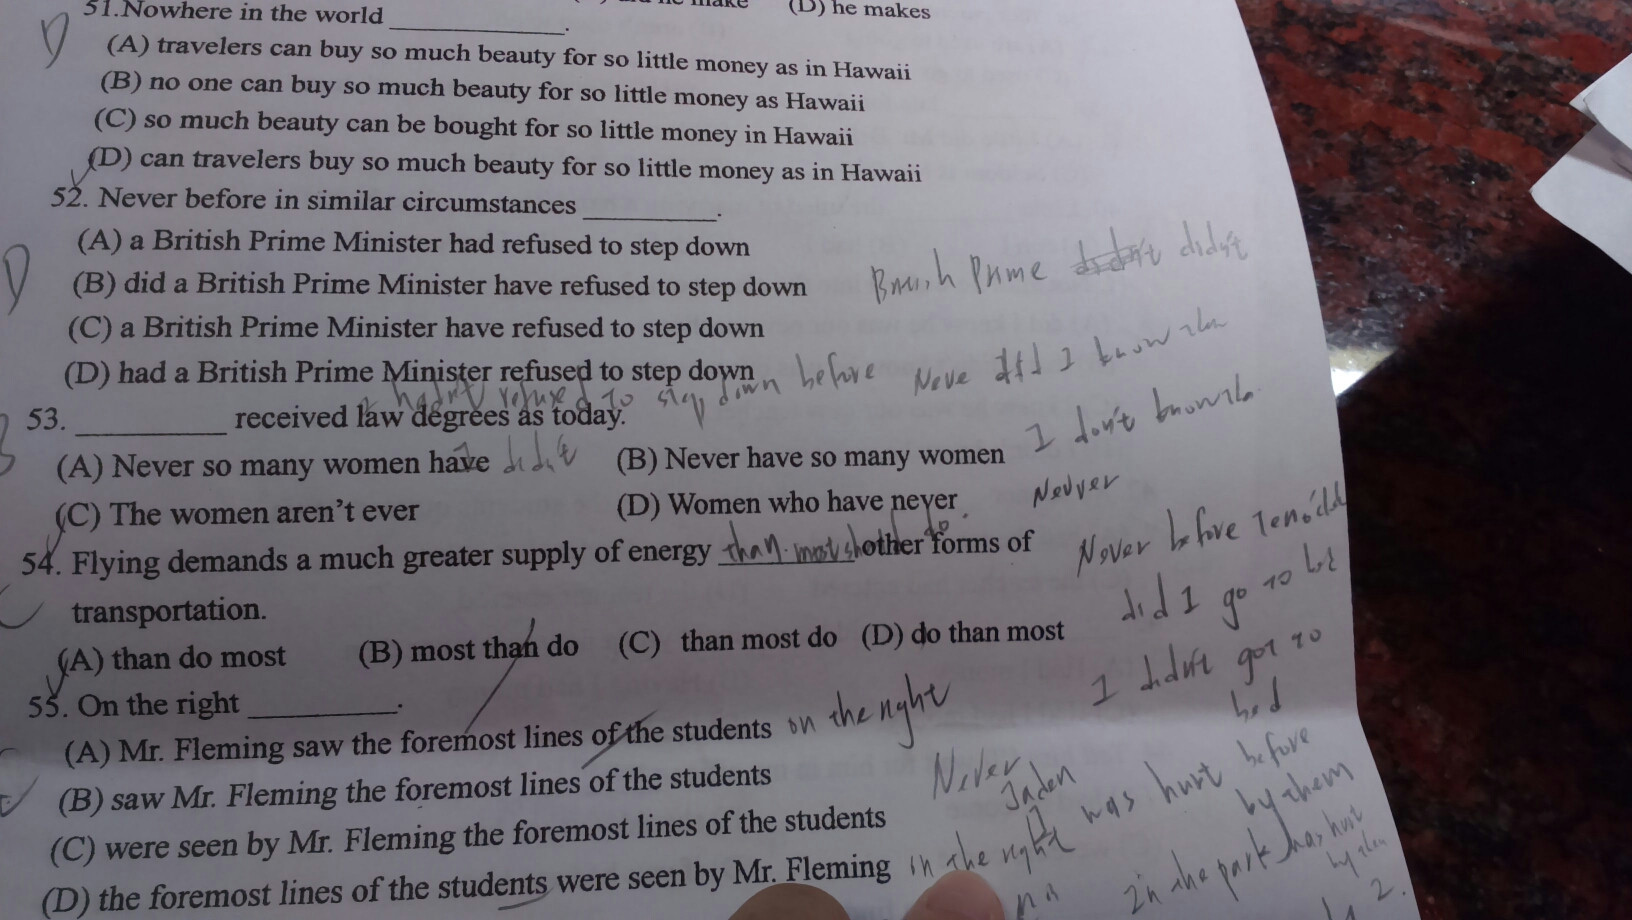 (D) he makes
51.Nowhere in the world ____________.
(A) travelers can buy so much beauty for so little money as in Hawaii
(B) no one can buy so much beauty for so little money as Hawaii
(C) so much beauty can be bought for so little money in Hawaii
(D) can travelers buy so much beauty for so little money as in Hawaii
52. Never before in similar circumstances _________.
(A) a British Prime Minister had refused to step down
(B) did a British Prime Minister have refused to step down
British Prime didn't
(C) a British Prime Minister have refused to step down
(D) had a British Prime Minister refused to step down
hadn't refused to step down before
Neve did I know
53. __________ received law degrees as today.
(A) Never so many women have didn't (B) Never have so many women
I don't know
(C) The women aren't ever (D) Women who have never
54. Flying demands a much greater supply of energy than most other forms of
do
transportation.
Never before
did I go to
(A) than do most (B) most than do (C) than most do (D) do than most
I didn't got to
bed
55. On the right __________.
(A) Mr. Fleming saw the foremost lines of the students on the right
(B) saw Mr. Fleming the foremost lines of the students
Never
Jaden
I was hurt before
by them
(C) were seen by Mr. Fleming the foremost lines of the students
(D) the foremost lines of the students were seen by Mr. Fleming in the right
in the park has hurt
2.